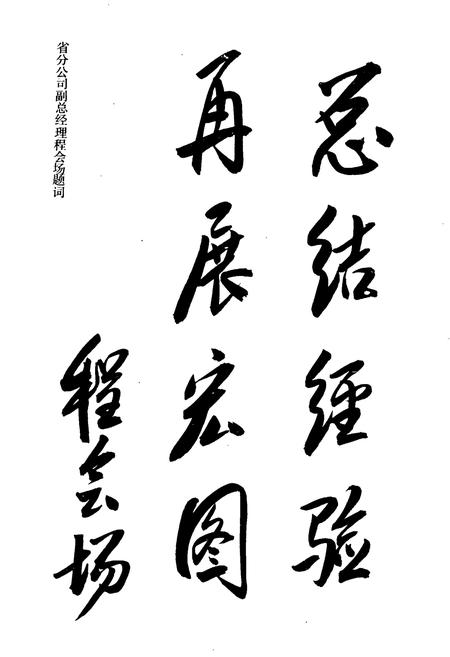 总结经验
再展宏图
程会场
省分公司副总经理程会场题词